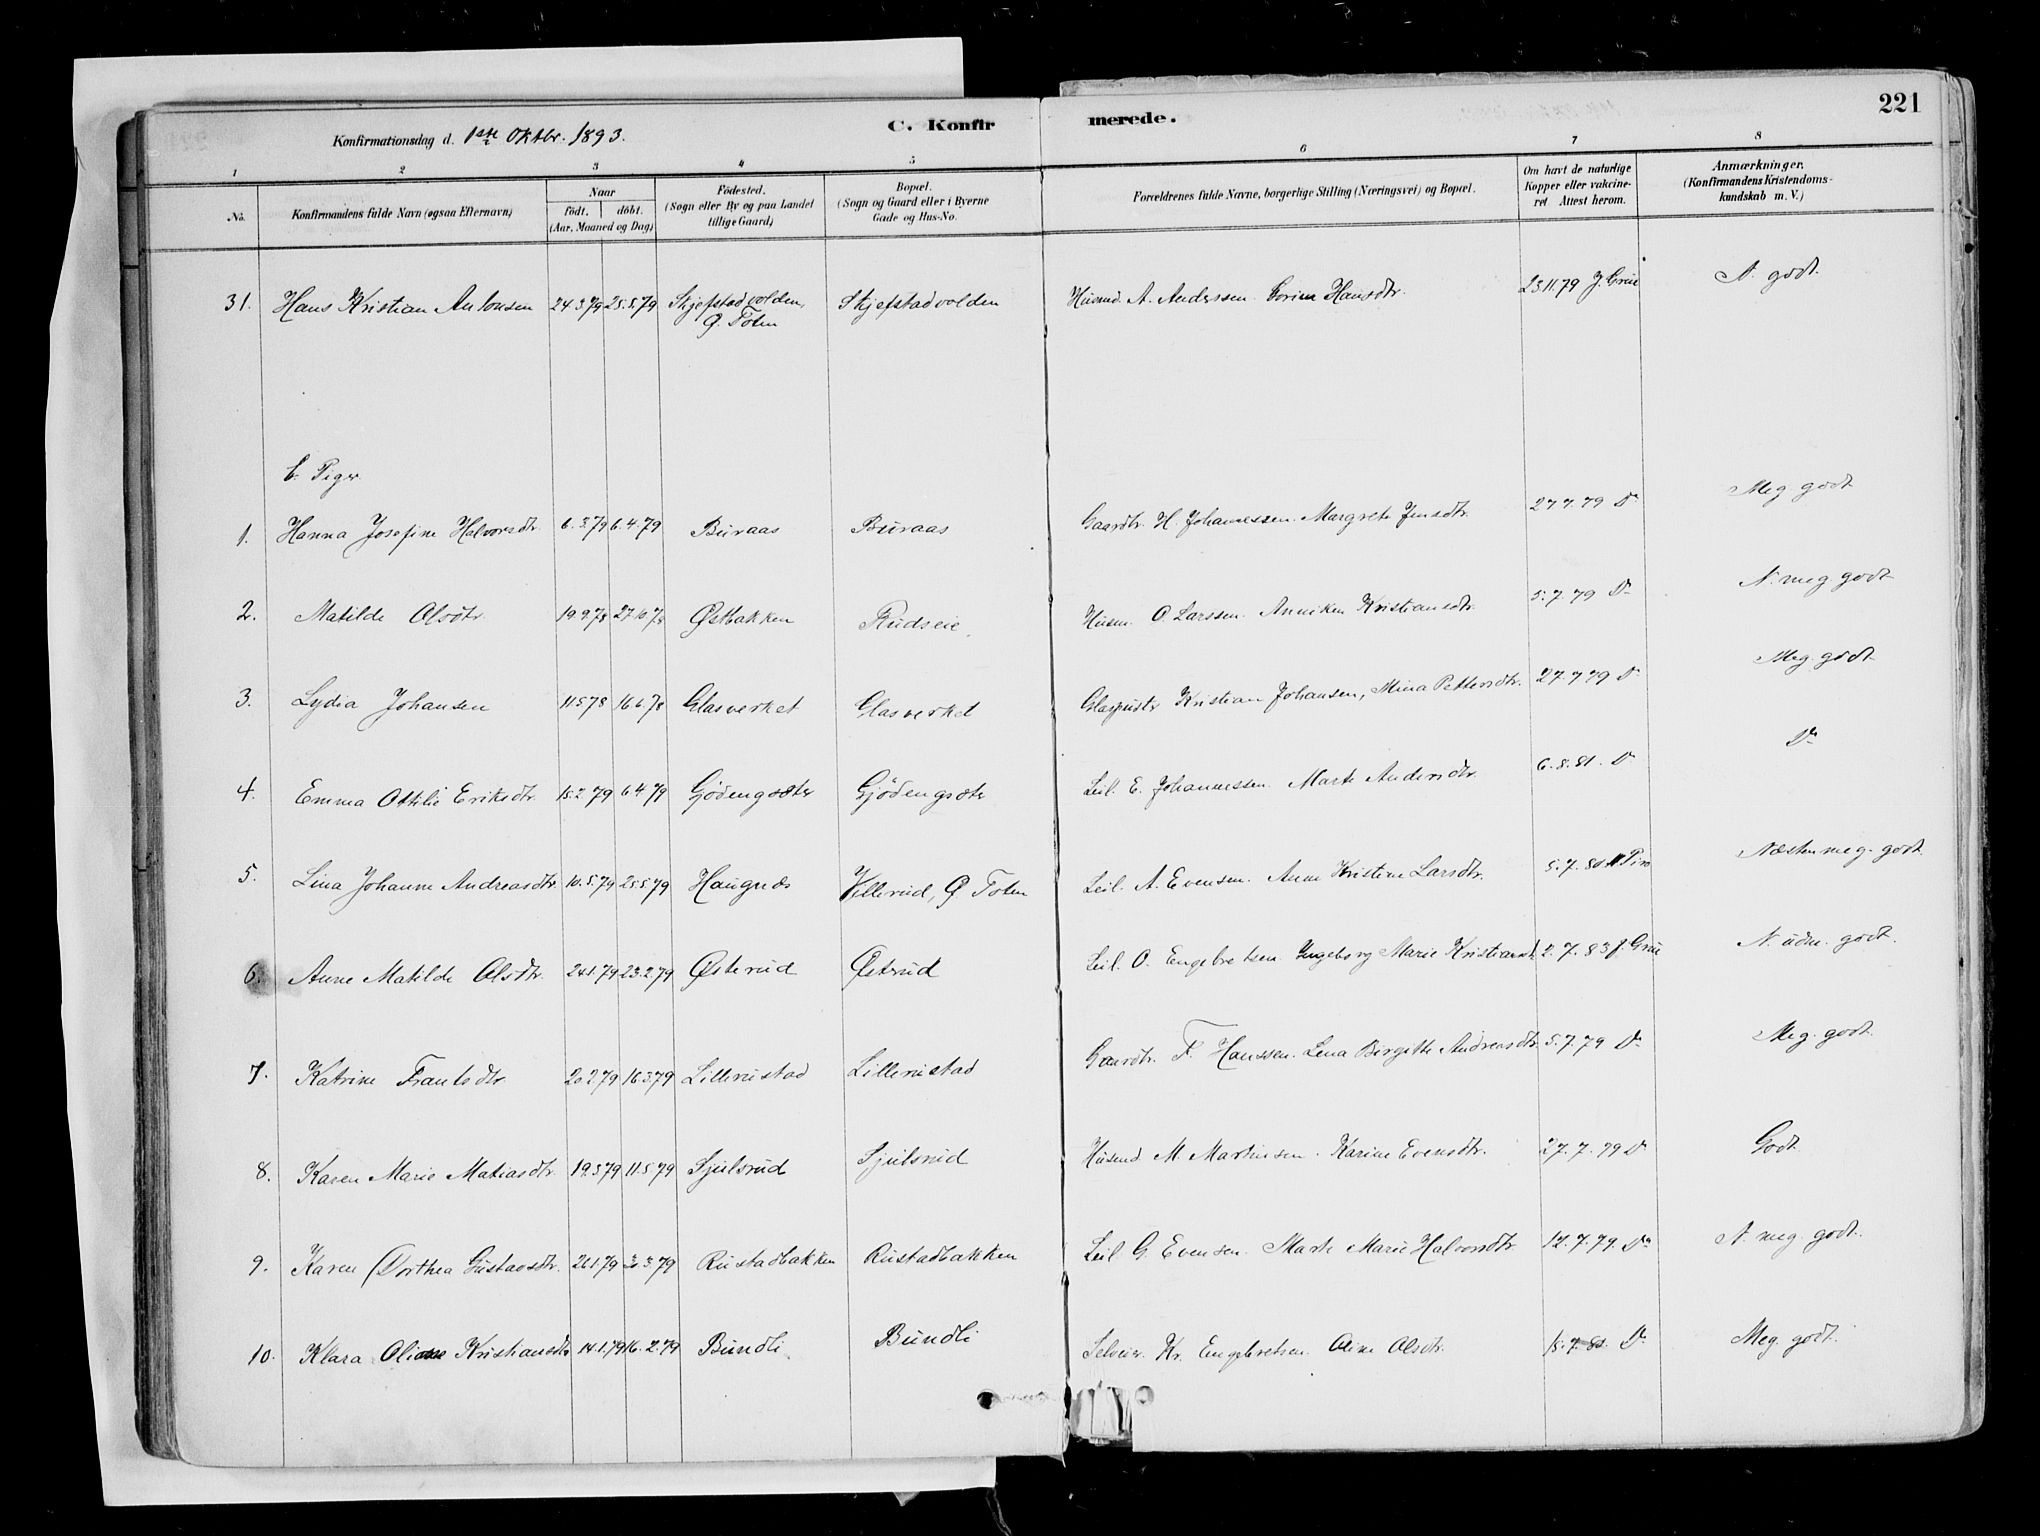 221
C. Konfirmerede.
Konfirmationsdag d. 1ste Oktbr. 1893.
1 2 3 4 5 6 7 8
No. Konfirmandens fulde Navn (ogsaa Efternavn) Naar födt. döbt. (Aar, Maaned og Dag) Födested. (Sogn eller By og paa Landet tillige Gaard) Bopæl. (Sogn og Gaard eller i Byerne Gade og Hus-No. Forældrenes fulde Navne, borgerlige Stilling (Næringsvei) og Bopæl. Om havt de naturlige Kopper eller vakcineret Attest herom. Anmærkninger. (Konfirmandens Kristendomskundskab m. V.)
31. Hans Kristian Antonsen 24 3 79 25.5.79 Skjefstadvolden, Ø. Toten Skjefstadvolden Husmd. A. Anderssen Hansdtr. 23.11.79 J. Grue N. godt.
b. Piger
1. Hanna Josefine Halvorsdtr. 6.3.79 6.4.79 Buraas Buraas Gaardbr. H. Johannessen. Margrete Jensdtr. 27.7.79 Do Meg godt
2. Matilde Olsdtr. 19.9.78 27.10.78 Østbakken Rudseie Husm. O. Larssen. Anniken Kristiansdtr. 5.7.79 Do N. meg godt
3. Lydia Johansen 11 5 78 16 6 78 Glasverket Glasverket Glaspuster Kristian Johansen, Mina Pettersdtr. 27.7 79 Do Meg. godt
4. Emma Ottilie Eriksdtr. 15 2 79 6 4 79 Gjødengsæter Gjödengsæter Leil. E. Johannessen. Marte Andersdtr. 6.8.81. Do Do
5. Lina Johanne Andreasdtr. 10.5.79 25.5.79 Haugnes Ø. Toten Leil. A. Evensen. Anne Kristine Larsdtr. 5.7.80 Næsten meg. godt
6. Anne Matilde Olsdtr. 24 1 79 23.2.79 Østerud Østrud Leil. O. Engebretsen Ingeborg Marie Kristiansdt 2.7.83 J. Grue N. udm. godt.
7. Katrine Frantsdtr. 20 2 79 16 3 79 Lillerustad Lillerustad Gaardbr. F. Hanssen. Lena Birgitte Andreasdtr. 5.7.79 Do Meg. godt.
8. Karen Marie Matiasdtr. 19 3 79 11.5.79 Sjulsrud Sjulsrud Husmd. M. Martinsen. Karine Evensdtr. 27.7.79 Do Godt
9. Karen Dorthea Gustavsdtr. 26 1 79 30.3.79 Rustadbakken Rustadbakken Leil. G. Evensen. Marte Marie Halvorsdtr. 12.7.79. Do N. meg. godt.
10. Klara Kristiansdtr 14.1.79 16.2.79 Bundli Bundli Selveier. Kr. Engebretsen. Oline Olsdtr. 18.7.80. Do Meg. godt.